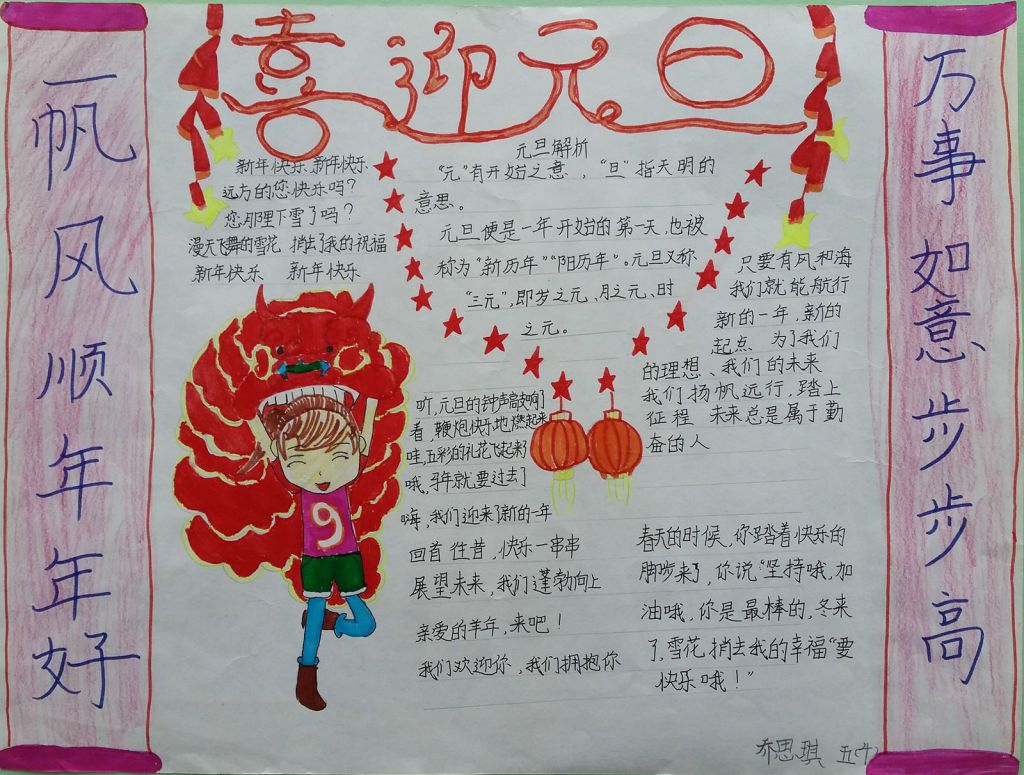 喜迎元旦
一帆风顺年年好
万事如意步步高
新年快乐 新年快乐
远方的您快乐吗？
您那里下雪了吗？
漫天飞舞的雪花 捎去了我的祝福
新年快乐 新年快乐
元旦解析
“元”有开始之意，“旦”指天明的
意思。
元旦便是一年开始的第一天，也被
称为“新历年”“阳历年”。元旦又称
“三元”，即岁之元、月之元、时
之元。
只要有风和海
我们就能航行
新的一年，新的
起点 为了我们
的理想、我们的未来
我们扬帆远行，踏上
征程 未来总是属于勤
奋的人
听，元旦的钟声敲响了
看，鞭炮快乐地燃起来
哇，五彩的礼花飞起来了
哦，马年就要过去了
嗨，我们迎来了新的一年
回首往昔，快乐一串串
展望未来，我们蓬勃向上
亲爱的羊年，来吧！
我们欢迎你，我们拥抱你
9
春天的时候，你踏着快乐的
脚步来了，你说“坚持哦，加
油哦，你是最棒的，冬来
了，雪花捎去我的幸福“要
快乐哦！”
乔思琪 五(4)